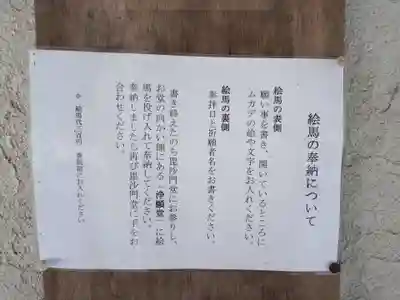 絵馬の奉納について
絵馬の表側
願い事を書き、開いているところに
ムカデの絵や文字をお入れください。
絵馬の裏側
参拝日と祈願者名をお書きください。
書き終えたのち毘沙門堂にお参りし、
お堂の向かい側にある「浄願堂」に絵
馬を投げ入れて奉納してください。
奉納しましたら再び毘沙門堂に手をお
合わせください。